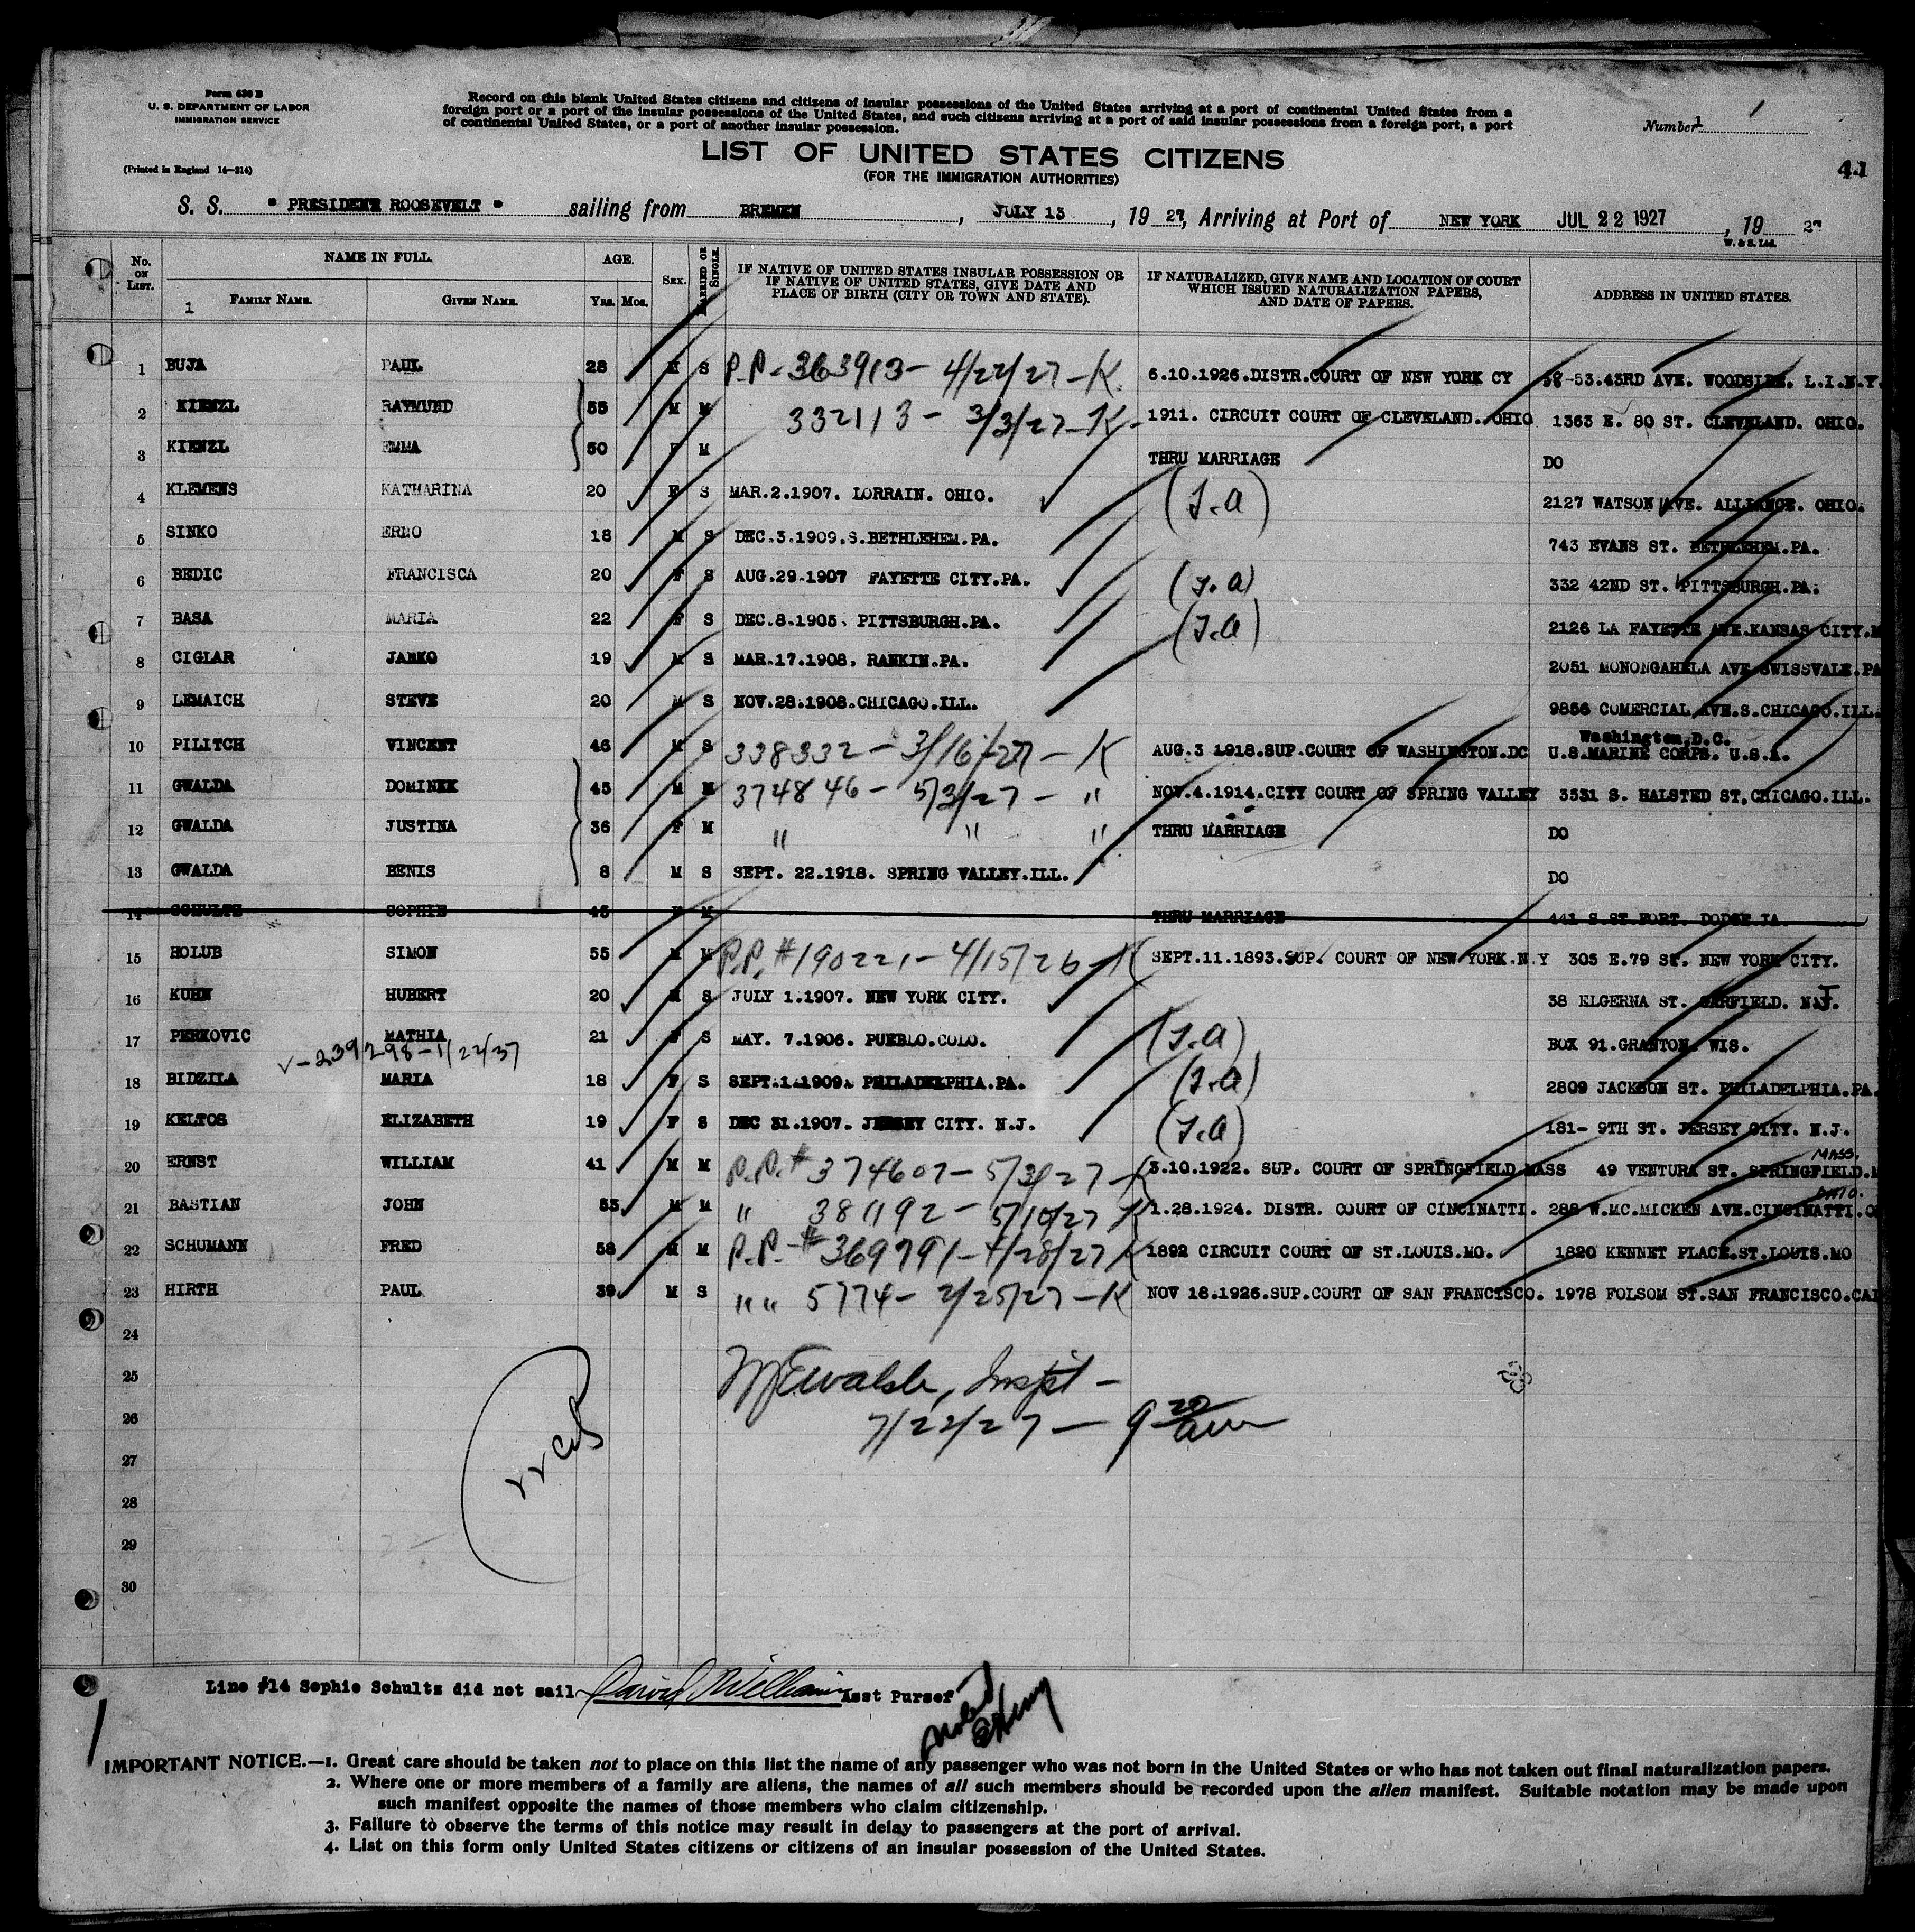 Form 630 B
U. S. DEPARTMENT OF LABOR
IMMIGRATION SERVICE
(Printed in England 14—214)
Record on this blank United States citizens and citizens of insular possessions of the United States arriving at a port of continental United States from a
foreign port or a port of the insular possessions of the United States, and such citizens arriving at a port of said insular possessions from a foreign port, a port
of continental United States, or a port of another insular possession.
Number 1
LIST OF UNITED STATES CITIZENS
(FOR THE IMMIGRATION AUTHORITIES)
S. S. " PRESIDENT ROOSEVELT " sailing from BREMEN, JULY 13, 19 27, Arriving at Port of NEW YORK JUL 22 1927, 19 27
W. & S. Ltd.
No. ON LIST. NAME IN FULL. AGE. SEX. MARRIED OR SINGLE. IF NATIVE OF UNITED STATES INSULAR POSSESSION OR IF NATIVE OF UNITED STATES, GIVE DATE AND PLACE OF BIRTH (CITY OR TOWN AND STATE). IF NATURALIZED, GIVE NAME AND LOCATION OF COURT WHICH ISSUED NATURALIZATION PAPERS, AND DATE OF PAPERS. ADDRESS IN UNITED STATES.
1 FAMILY NAME. GIVEN NAME. Yrs. Mos.
1 BUJA PAUL 28 M S P.P.- 363913 - 4/22/27 - K 6.10.1926.DISTR.COURT OF NEW YORK CY 58-53.43RD AVE. WOODSIDE. L.I.N.Y.
2 KIENZL RAYMUND 55 M M 332113 - 3/3/27 - K - 1911. CIRCUIT COURT OF CLEVELAND. OHIO 1363 E. 80 ST. CLEVELAND. OHIO.
3 KIENZL EMMA 50 F M THRU MARRIAGE DO
4 KLEMENS KATHARINA 20 F S MAR.2.1907. LORRAIN. OHIO. (J.A) 2127 WATSON AVE. ALLIANCE. OHIO.
5 SINKO ERNO 18 M S DEC.3.1909.S.BETHLEHEM.PA. 743 EVANS ST. BETHLEHEM.PA.
6 BEDIC FRANCISCA 20 F S AUG.29.1907 FAYETTE CITY.PA. (J.A) 332 42ND ST. PITTSBURGH.PA.
7 BASA MARIA 22 F S DEC.8.1905. PITTSBURGH.PA. (J.A) 2126 LA FAYETTE AVE.KANSAS CITY.M
8 CIGLAR JANKO 19 M S MAR.17.1908. RANKIN.PA. 2051 MONONGAHELA AVE SWISSVALE.PA
9 LEMAICH STEVE 20 M S NOV.28.1908.CHICAGO.ILL. 9856 COMERCIAL AVE.S.CHICAGO.ILL.
10 PILITCH VINCENT 46 M S 338332 - 3/16/27 - K AUG.3 1918.SUP.COURT OF WASHINGTON.DC Washington,D.C. U.S.MARINE CORPS. U.S.A.
11 GWALDA DOMINEK 45 M M 374846 - 5/3/27 - " NOV.4.1914.CITY COURT OF SPRING VALLEY 3531 S. HALSTED ST, CHICAGO.ILL.
12 GWALDA JUSTINA 36 F M " " " THRU MARRIAGE DO
13 GWALDA BENIS 8 M S SEPT. 22.1918. SPRING VALLEY.ILL. DO
14 SCHULTZ SOPHIE 45 F M THRU MARRIAGE 441 S.ST.FORT. DODGE IA
15 HOLUB SIMON 55 M M P.P. # 190221 - 4/15/26 - K SEPT.11.1893.SUP. COURT OF NEW YORK.N.Y 303 E.79 ST. NEW YORK CITY.
16 KUHN HUBERT 20 M S JULY 1.1907. NEW YORK CITY. 38 ELGERNA ST. GARFIELD. N.J.
17 PERKOVIC MATHIA 21 F S MAY. 7.1906. PUEBLO.COLO. (J.A) BOX 91.GRANTON. WIS.
v-239298-1/22/37
18 BIDZILA MARIA 18 F S SEPT.1.1909. PHILADELPHIA.PA. (J.A) 2809 JACKSON ST. PHILADELPHIA.PA.
19 KELTOS ELIZABETH 19 F S DEC 31.1907. JERSEY CITY. N.J. (J.A) 181- 9TH ST. JERSEY CITY. N.J.
20 ERNST WILLIAM 41 M M P.P. # 374607 - 5/3/27 - K 3.10.1922. SUP. COURT OF SPRINGFIELD MASS 49 VENTURA ST. SPRINGFIELD.M MASS.
21 BASTIAN JOHN 53 M M " 381192 - 5/10/27 K 1.28.1924. DISTR. COURT OF CINCINATTI. 288 W.MC.MICKEN AVE.CINCINATTI.O OHIO.
22 SCHUMANN FRED 58 M M P.P. - # 369791 - 4/28/27 K 1892 CIRCUIT COURT OF ST.LOUIS.MO. 1820 KENNET PLACE.ST.LOUIS.MO
23 HIRTH PAUL 39 M S " " 5774 - 2/25/27 - K NOV 18.1926.SUP.COURT OF SAN FRANCISCO. 1978 FOLSOM ST.SAN FRANCISCO.CAL
24
25
26 7/22/27 — 9 20 am
27
28
29
30
Line #14 Sophie Schultz did not sail David Williams Asst Purser
Noted
IMPORTANT NOTICE.—1. Great care should be taken not to place on this list the name of any passenger who was not born in the United States or who has not taken out final naturalization papers.
2. Where one or more members of a family are aliens, the names of all such members should be recorded upon the alien manifest. Suitable notation may be made upon
such manifest opposite the names of those members who claim citizenship.
3. Failure to observe the terms of this notice may result in delay to passengers at the port of arrival.
4. List on this form only United States citizens or citizens of an insular possession of the United States.